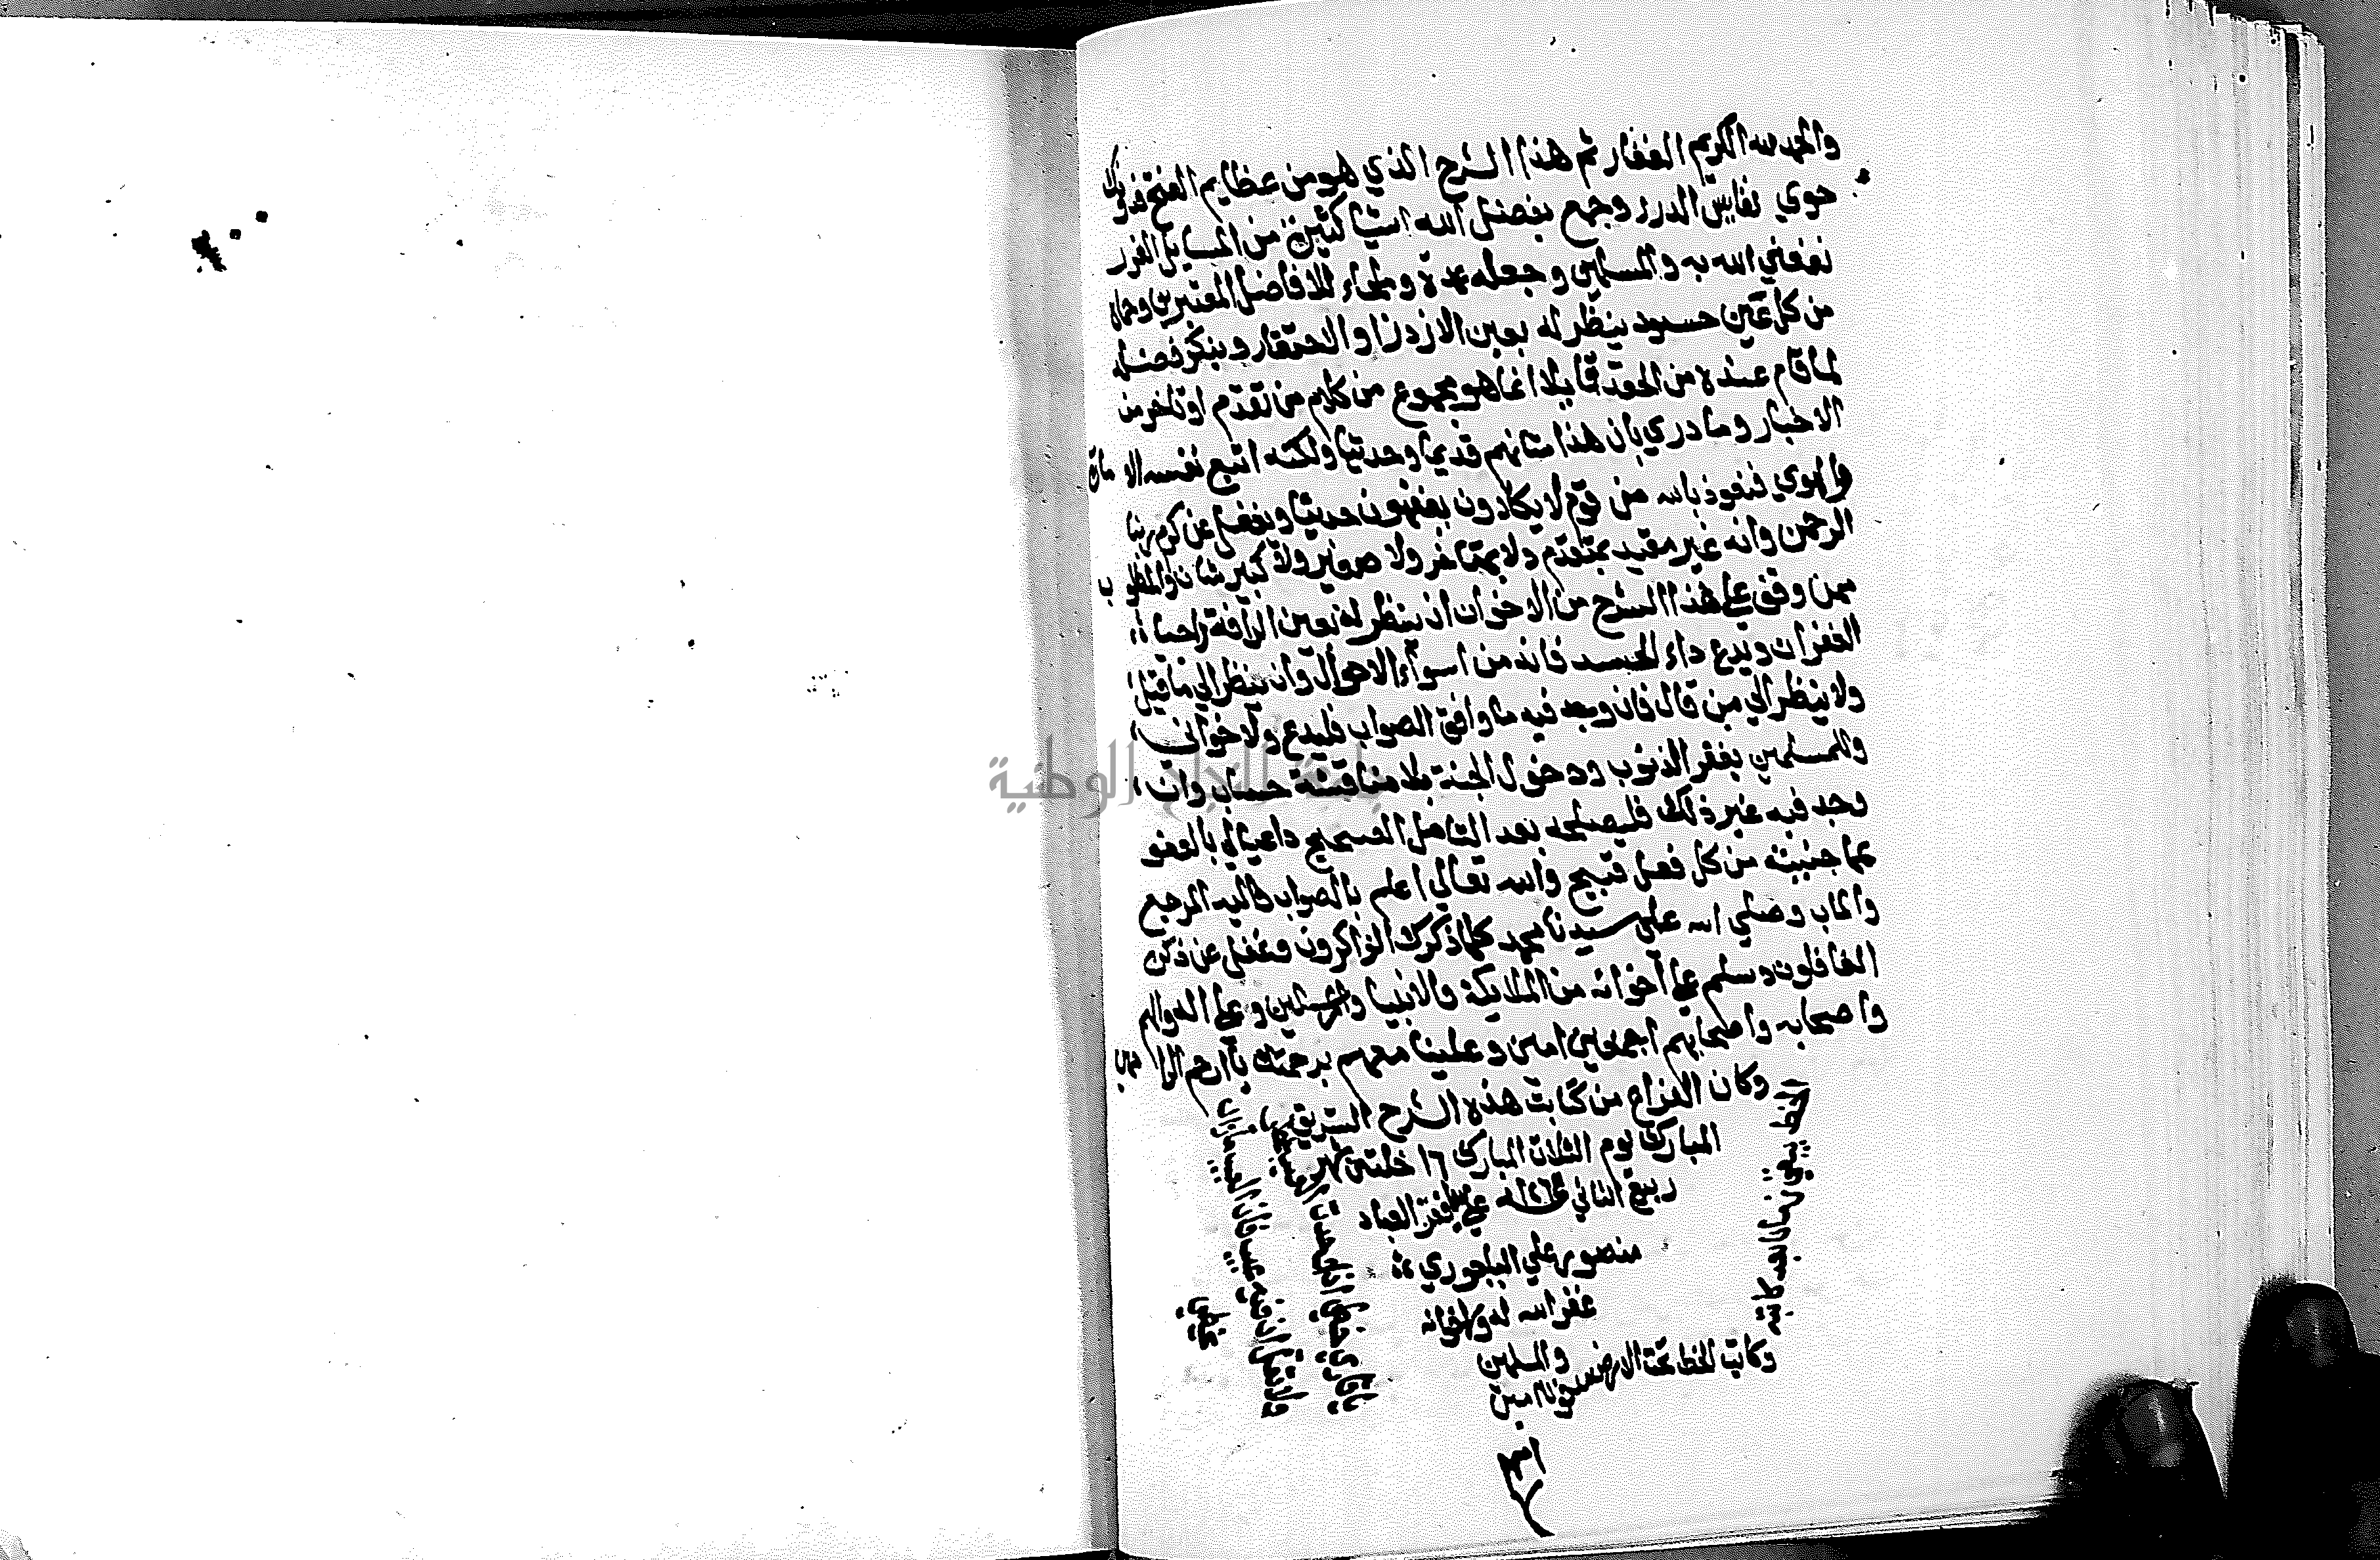 والحمد لله الكريم الغفار ثم هذا الشرح الذي هو من عظايم الفتح قد
حوي نفايس الدرر وجمع بفضل الله اشيا كثيرة من المسايل الغرر
نفعني الله به والمسلمين وجعله عمدة وملجاء للافاضل المعتبرين وحماه
من كل عين حسود ينظر له بعين الازدرا والاحتقار وينكر فضله
لما قام عنده من الحقد قايلا انما هو مجموع من كلام من تقدم او تاخر من
الاخبار وما دري بان هذا شانهم قديما وحديثا ولكنه اتبع نفسه الامارة
والهوي فنعوذ بالله من قوم لا يكادون يفقهون حديثا وغفل عن كرم ربنا
الرحمن وانه غير مقيد بمتقدم ولا بمتاخر ولا صغير ولا كبير شان والمطلوب
ممن وقف علي هذا الشرح من الاخوان ان ينظر له بعين الرافة راجيا
الغفران ويدع داء الحسد فانه من اسواء الاحوال وان ينظر الي ما قيل
ولا ينظر الي من قال فان وجد فيه ما وافق الصواب فليدع ولاخواني
وللمسلمين بغفر الذنوب ودخول الجنة بلا مناقشة حساب وان
وجد فيه غير ذلك فليصلحه بعد التامل الصحيح داعيا لي بالعفو
عما جنيته من كل فعل قبيح والله تعالي اعلم بالصواب واليه المرجع
والماب وصلي الله علي سيدنا محمد كلما ذكرك الذاكرون وغفل عن ذكره
الغافلون وسلم علي اخوانه من الملايكة والانبيا والمرسلين وعلي اله والهم
واصحابه واصحابهم اجمعين امين وعلينا معهم برحمتك يا ارحم الراحمين
وكان الفراغ من كتابت هذه الشرح الشريف
المبارك يوم الثلاث المبارك ١٦ خلت من شهر
ربيع الثاني علي يد افقر العباد
منصور علي الباجوري
غفر الله له ولاخوانه
والمسلمين
امين
الخط يبقي زمانا بعد كاتبه
وكاتب الخط تحت الارض مدفونا
جامعة النجاح الوطنية